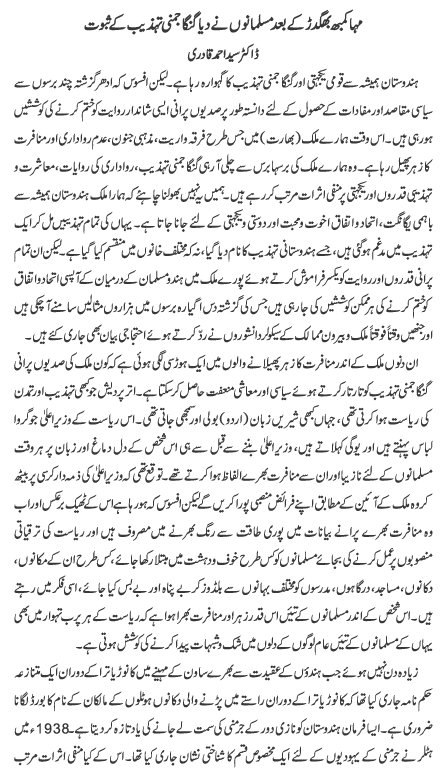 مہا کمبھ بھگدڑ کے بعد مسلمانوں نے دیا گنگا جمنی تہذیب کے ثبوت
ڈاکٹر سید احمد قادری
ہندوستان ہمیشہ سے قومی یکجہتی اور گنگا جمنی تہذیب کا گہوارہ رہا ہے۔ لیکن افسوس کہ ادھر گزشتہ چند برسوں سے
سیاسی مقاصد اور مفادات کے حصول کے لئے دانستہ طور پر صدیوں پرانی ایسی شاندار روایت کو ختم کرنے کی کوششیں
ہو رہی ہیں۔ اس وقت ہمارے ملک (بھارت) میں جس طرح فرقہ واریت، مذہبی جنون، عدم رواداری اور منافرت
کا زہر پھیل رہا ہے۔ وہ ہمارے ملک کی برسہا برس سے چلی آرہی گنگا جمنی تہذیب، رواداری کی روایات، معاشرت و
تہذیبی قدروں اور یکجہتی پر منفی اثرات مرتب کر رہے ہیں۔ ہمیں یہ نہیں بھولنا چاہئے کہ ہمارا ملک ہندوستان ہمیشہ سے
باہمی یگانگت، اتحاد و اتفاق اخوت و محبت اور دوستی و یکجہتی کے لئے جانا جاتا ہے۔ یہاں کی تمام تہذیبیں مل کر ایک
تہذیب میں مدغم ہو گئی ہیں، جسے ہندوستانی تہذیب کا نام دیا گیا، نہ کہ مختلف خانوں میں منقسم کیا گیا ہے۔ لیکن ان تمام
پرانی قدروں اور روایت کو یکسر فراموش کرتے ہوئے پورے ملک میں ہندو مسلمان کے درمیان کے آپسی اتحاد و اتفاق
کو ختم کرنے کی ہر ممکن کوششیں کی جارہی ہیں جس کی گزشتہ دس گیارہ برسوں میں ہزاروں مثالیں سامنے آچکی ہیں
اور جنھیں وقتاً فوقتاً ملک و بیرون ممالک کے سیکولر دانشوروں نے رد کرتے ہوئے احتجاجی بیان بھی جاری کئے ہیں۔
ان دنوں ملک کے اندر منافرت کا زہر پھیلانے والوں میں ایک ہوڑ سی لگی ہوئی ہے کہ کون ملک کی صدیوں پرانی
گنگا جمنی تہذیب کو تار تار کرتے ہوئے سیاسی اور معاشی منفعت حاصل کر سکتا ہے۔ اتر پردیش جو کبھی تہذیب اور تمدن
کی ریاست ہوا کرتی تھی، جہاں کبھی شیریں زبان (اردو) بولی اور سمجھی جاتی تھی۔ اس ریاست کے وزیر اعلیٰ جو گروا
لباس پہنتے ہیں اور یوگی کہلاتے ہیں، وزیر اعلیٰ بننے سے قبل سے ہی اس شخص کے دل دماغ اور زبان پر ہر وقت
مسلمانوں کے لئے نازیبا اور ان سے منافرت بھرے الفاظ ہوا کرتے تھے۔ توقع تھی کہ وزیر اعلیٰ کی ذمہ دار کرسی پر بیٹھ
کر وہ ملک کے آئین کے مطابق اپنے فرائض منصبی پورا کریں گے لیکن افسوس کہ ہو رہا ہے اس کے ٹھیک برعکس اور اب
وہ منافرت بھرے پرانے بیانات میں پوری طاقت سے رنگ بھرنے میں مصروف ہیں اور ریاست کی ترقیاتی
منصوبوں پر عمل کرنے کی بجائے مسلمانوں کو کس طرح خوف و دہشت میں مبتلا رکھا جائے، کس طرح ان کے مکانوں،
دکانوں، مساجد، درگاہوں، مدرسوں کو مختلف بہانوں سے بلڈوز کر بے پناہ اور بے بس کیا جائے، اسی فکر میں رہتے
ہیں۔ اس شخص کے اندر مسلمانوں کے تئیں اس قدر زہر اور منافرت بھرا ہوا ہے کہ ریاست کے ہر پرب تہوار میں بھی
یہاں کے مسلمانوں کے تئیں عام لوگوں کے دلوں میں شک و شبہات پیدا کرنے کی کوشش ہوتی ہے۔
زیادہ دن نہیں ہوئے جب ہندوؤں کے عقیدت سے بھرے ساون کے مہینے میں کانوڑ یاترا کے دوران ایک متنازعہ
حکم نامہ جاری کیا تھا کہ کانوڑ یاترا کے دوران راستے میں پڑنے والی دکانوں ہوٹلوں کے مالکان کے نام کا بورڈ لگانا
ضروری ہے۔ ایسا فرمان ہندوستان کو نازی دور کے جرمنی کی سمت لے جانے کی یاد تازہ کر دیتا ہے۔ 1938ء میں
ہٹلر نے جرمنی کے یہودیوں کے لئے ایک مخصوص قسم کا شناختی نشان جاری کیا تھا۔ اس کے کیا منفی اثرات مرتب